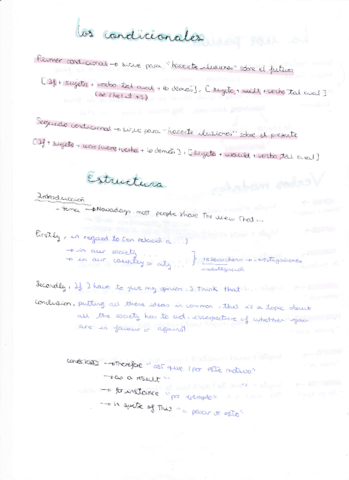 Los condicionales
Primer condicional → sirve para "hacerte ilusiones" sobre el futuro
[If + sujeto + verbo tal cual + lo demás], [sujeto + will + verbo tal cual]
(he / she / it +s)
Segundo condicional → sirve para "hacerte ilusiones" sobre el presente
[If + sujeto + + lo demás], [sujeto + would + verbo tal cual]
Estructura
Introducción
- tema → Nowadays most people share the view that...
Firstly, in regard to (en relación a ... )
→ in our society
→ in our country or city
researchers → investigaciones
Secondly, If I have to give my opinion, I think that
Conclusion, putting all these ideas in common, this is a topic about
all the society has to act, irrespective of whether you
are in favour or against
→ therefore "así que / por este motivo"
→ as a result "
→ for instance "por ejemplo"
→ in spite of this "a pesar de esto"